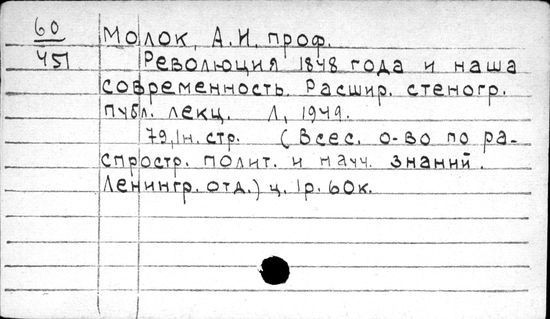 60
451
Молок, А.И. проф.
Революция 1848 года и наша
современность. Расшир. стеногр.
публ. лекц. Л, 1949.
79,1н. стр. (Всес. о-во по ра-
спростр. полит. и научн. знаний.
Ленингр. отд.) ц. 1р. 60к.